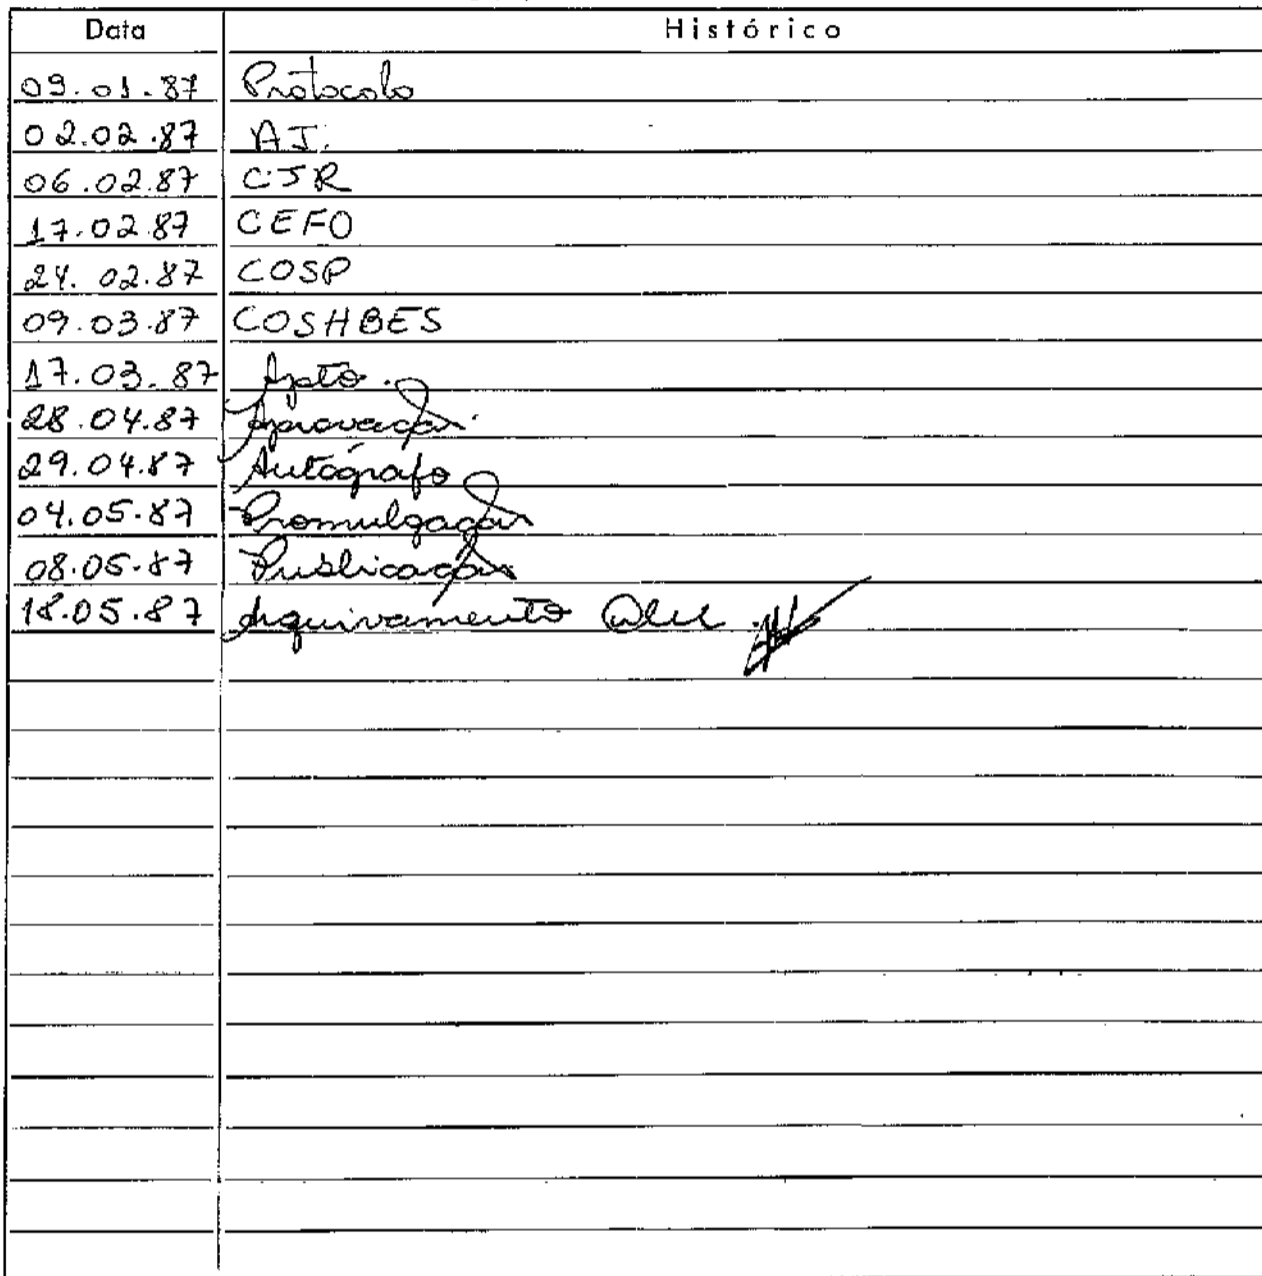 Data Histórico
09.01.87 Protocolo
02.02.87 AJ.
06.02.87 CJR
17.02.87 CEFO
24.02.87 COSP
09.03.87 COSHBES
17.03.87 Apto.
28.04.87 Aprovação
29.04.87 Autógrafo
04.05.87 Promulgação
08.05.87 Publicação
18.05.87 Arquivamento